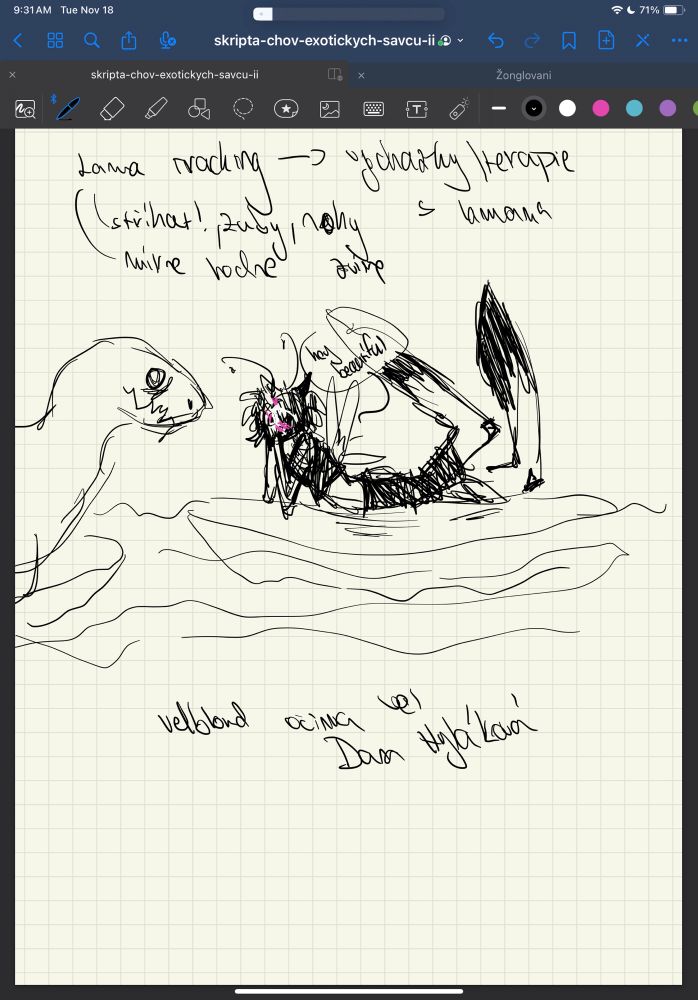 9:31 AM Tue Nov 18 71%
skripta-chov-exotickych-savcu-ii
skripta-chov-exotickych-savcu-ii Žonglovani
Lama tracking → vychazky/terapie
s lamama
(stříhat!, zuby, nohy
hey
beautiful
velbloud očima
Hylákové